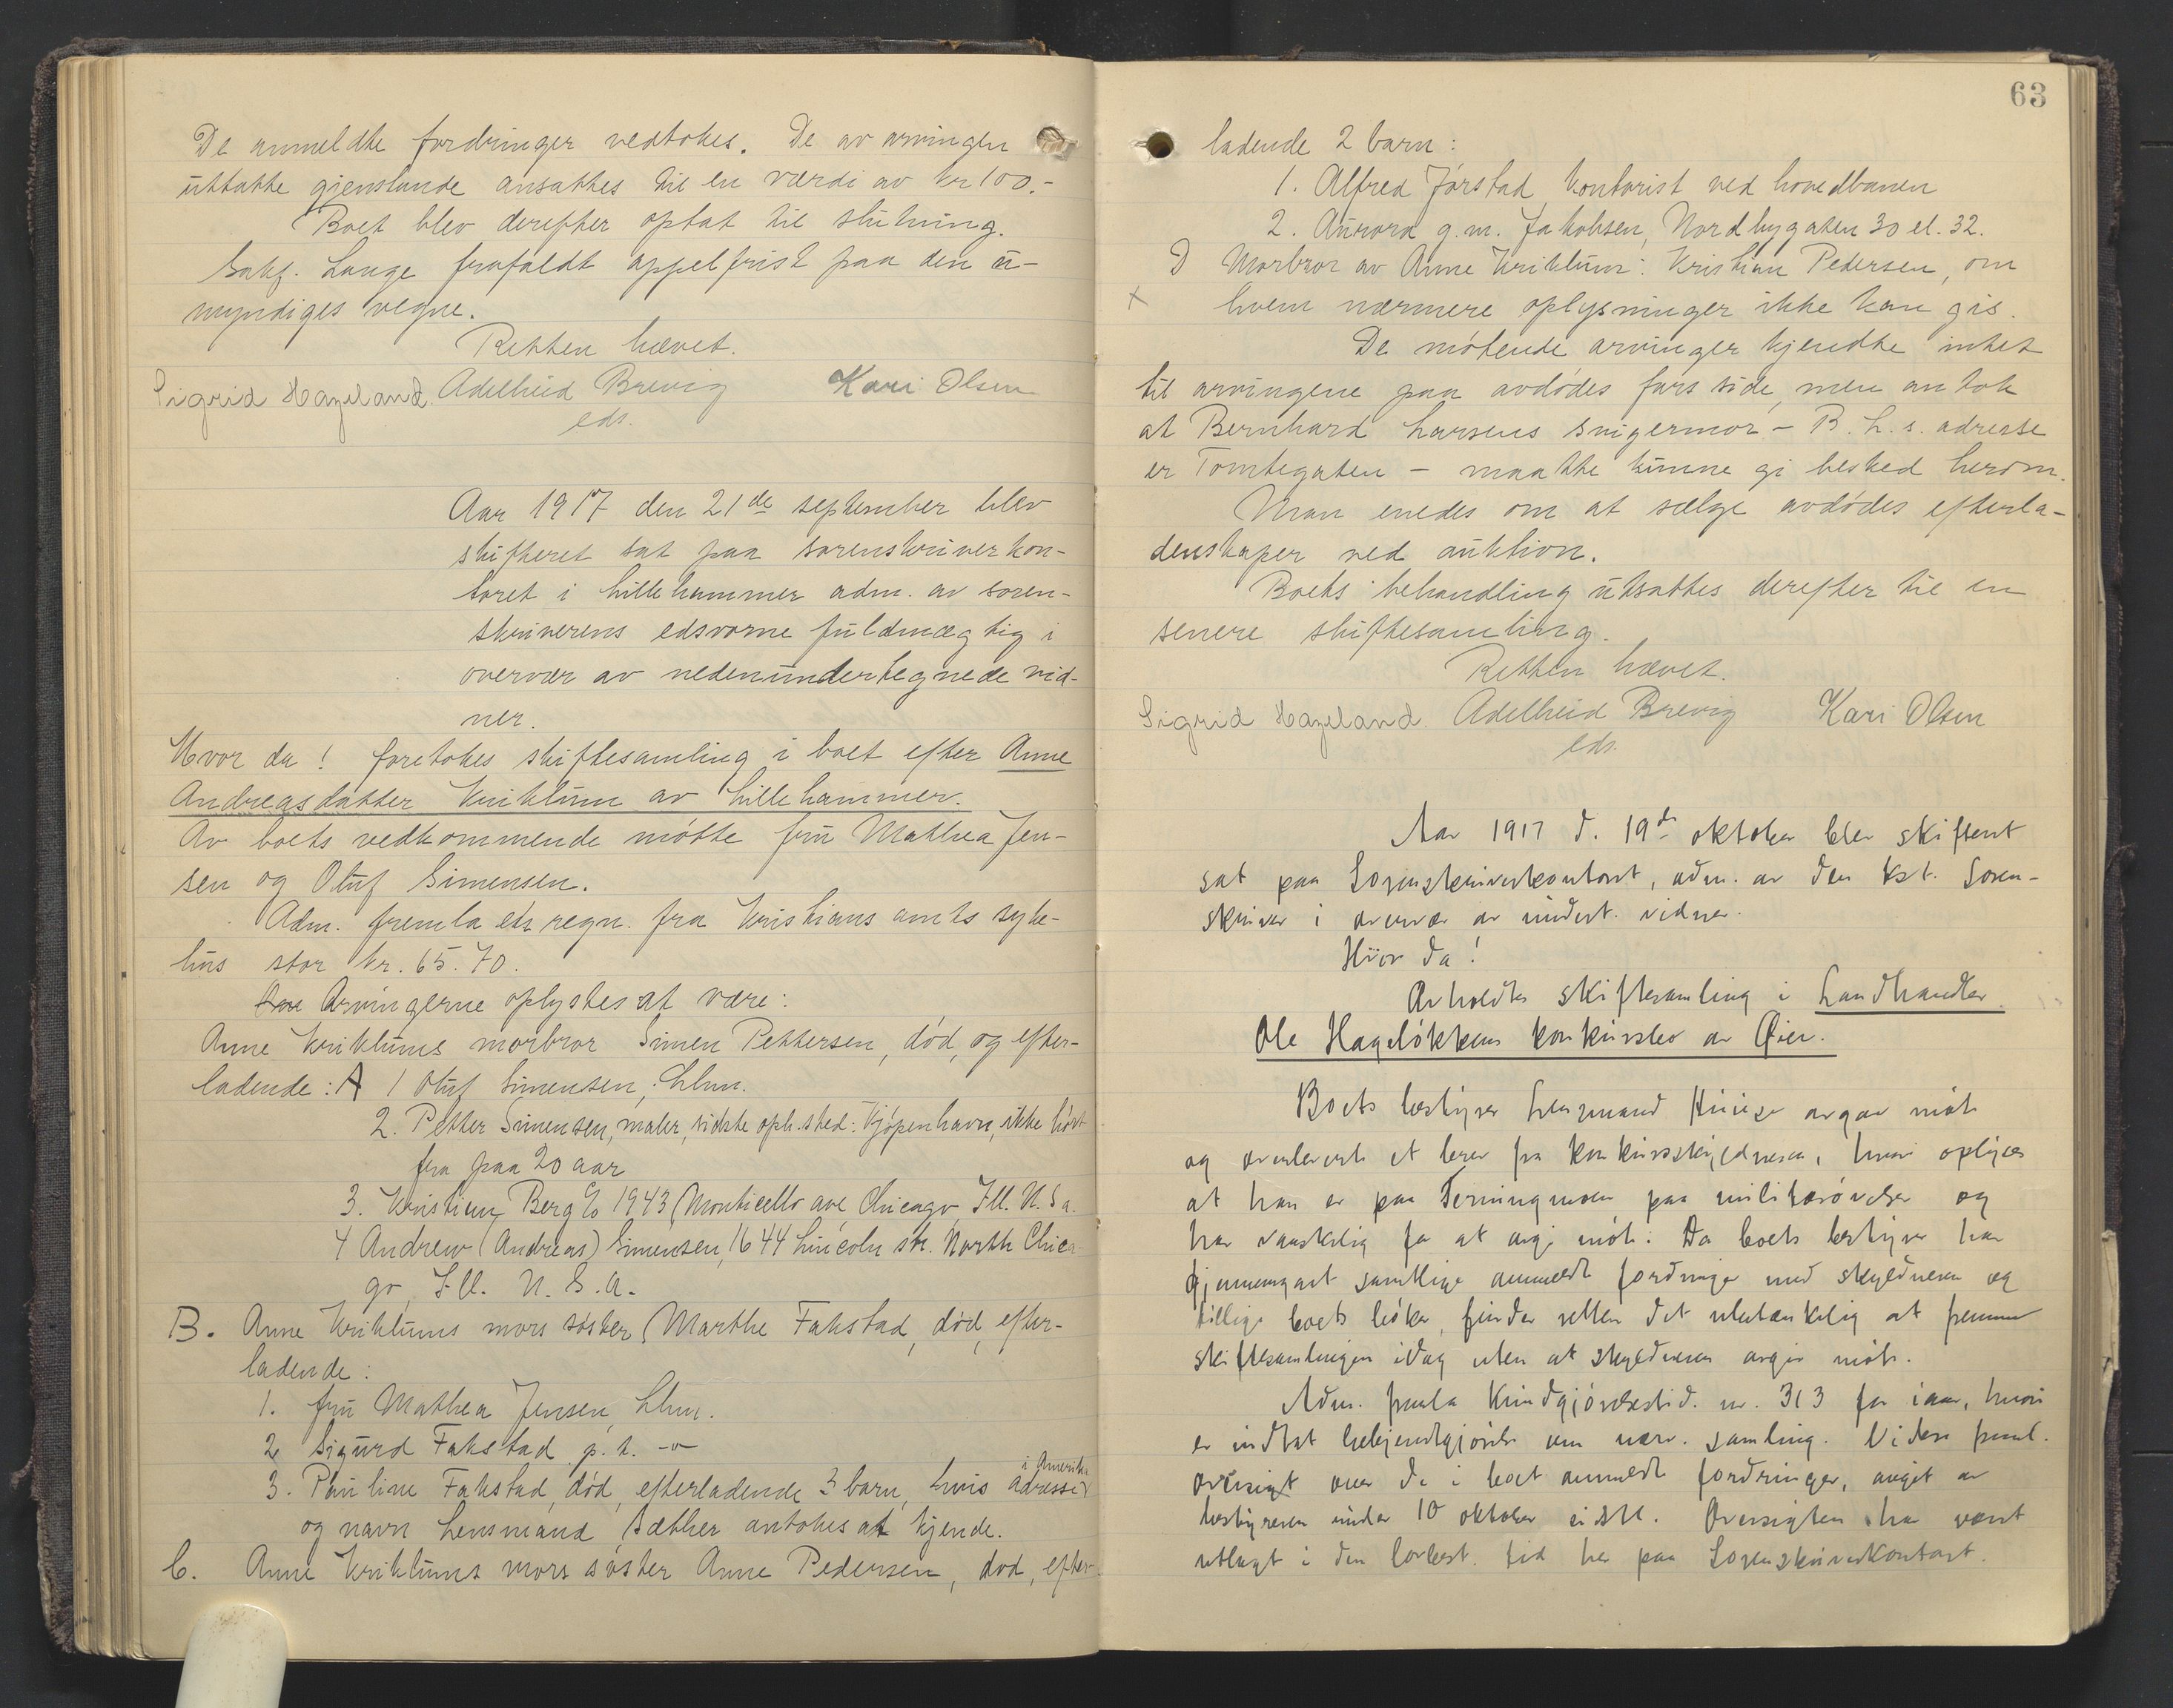 De anmeldte fordringer vedtokes. De av arvingen
uttatte gjenstande ansattes til en værdi av kr 100.-
Boet blev derefter optat til slutning.
Sakf. Lange frafaldt appelfrist paa den u-
myndiges vegne.
Retten hævet.
Sigrid Hazeland. Adelheid Brevig Kari Olsen
eds.
Aar 1917 den 21de september blev
skifteret sat paa sorenskriverkon-
toret i Lillehammer adm. av soren-
skriverens edsvorne fuldmægtig i
overvær av nedenundertegnede vid-
ner.
Hvor da! foretokes skiftesamling i boet efter Anne
Andreasdatter Kriklum av Lillehammer.
Av boets vedkommende møtte fru Mathea Jen-
sen og Oluf Simensen.
Adm. fremla en regn. fra Kristians amts syke-
hus stor kr. 65.70.
Arvingerne oplystes at være:
Anne Kriklums morbror Simen Pettersen, død, og efter-
ladende: A 1 Oluf Simensen, Lhmr.
2. Petter Simensen, maler, sidste oph.sted: Kjøpenhavn, ikke hørt
fra paa 20 aar
3. Kristiane Berg c/o 1943 Monticello ave Chicago, Ill. U.S.a.
4 Andrew (Andreas) Simensen, 1644 Lincoln str. North Chica-
go, Ill. U.S.a.
B. Anne Kriklums mors søster Marthe Fakstad, død, efter-
ladende:
1. fru Mathea Jensen, Lhmr.
2 Sigurd Fakstad p.t. -o-
3. Pauline Fakstad, død, efterladende 3 barn i Amerika, hvis adresse
og navn Lensmand Sæther antokes at kjende.
C. Anne Kriklums mors søster Anne Pedersen, død, efter-
63
ladende 2 barn:
1. Alfred Jørstad, kontorist ved hovedbanen
2. Aurora g.m. Jakobsen, Nordbygaten 30 el. 32.
D Morbror av Anne Kriklum: Kristian Pedersen, om
x hvem nærmere oplysninger ikke kan gis.
De møtende arvinger kjendte intet
til arvingene paa avdødes fars side, men antok
at Bernhard Larsens svigermor - B. L.s. adresse
er Tomtegaten - maatte kunne gi besked herom.
Man enedes om at sælge avdødes efterla-
denskaper ved auktion.
Boets behandling utsattes derefter til en
senere skiftesamling.
Retten hævet.
Sigrid Hazeland. Adelheid Brevig Kari Olsen
eds.
Aar 1917 d. 19de oktober blev skifteret
sat paa Sorenskriverkontoret, adm. av den kst. Soren-
skriver i overvær av undert. vidner.
Hvor da!
Avholdtes skiftesamling i Landhandler
Ole Hageløkkens konkursbo av Øier.
Boets bestyrer Lensmand av gav møte
og overleverte et brev fra konkursskyldneren, hvori oplyses
at han er paa Terningmoen paa militærøvelse og
har vanskelig for at avgi møte. Da boets bestyrer har
gjennemgaat samtlige anmeldte fordringer med skyldneren og
tillige boets bøker, finder retten det ubetænkelig at fremme
skiftesamlingen idag uten at skyldneren avgir møte.
Adm. fremla Kundgjørelsestid. nr. 313 for iaar, hvori
er indtat bekjendtgjørelse om nærv. samling. Videre freml.
oversigt over de i boet anmeldte fordringer, avgit av
bestyreren under 10 oktober sidstl. Oversigten har været
utlagt i den lovbest. tid her paa Sorenskriverkontoret.